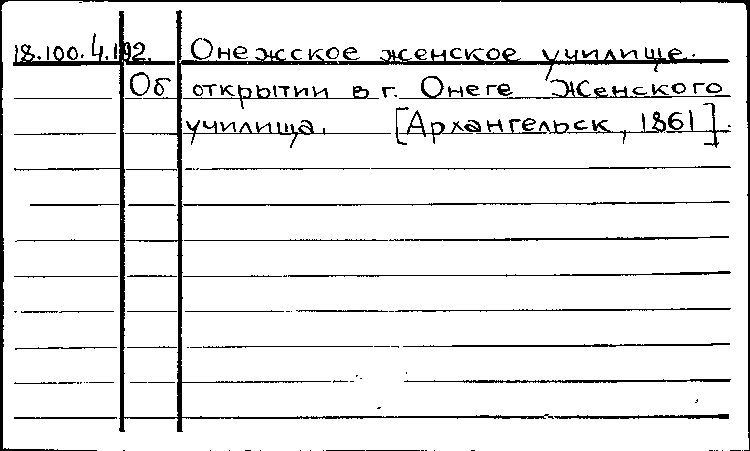 18.100.4.192. Онежское женское училище.
Об открытии в г. Онеге Женского
училища. [Архангельск, 1861].